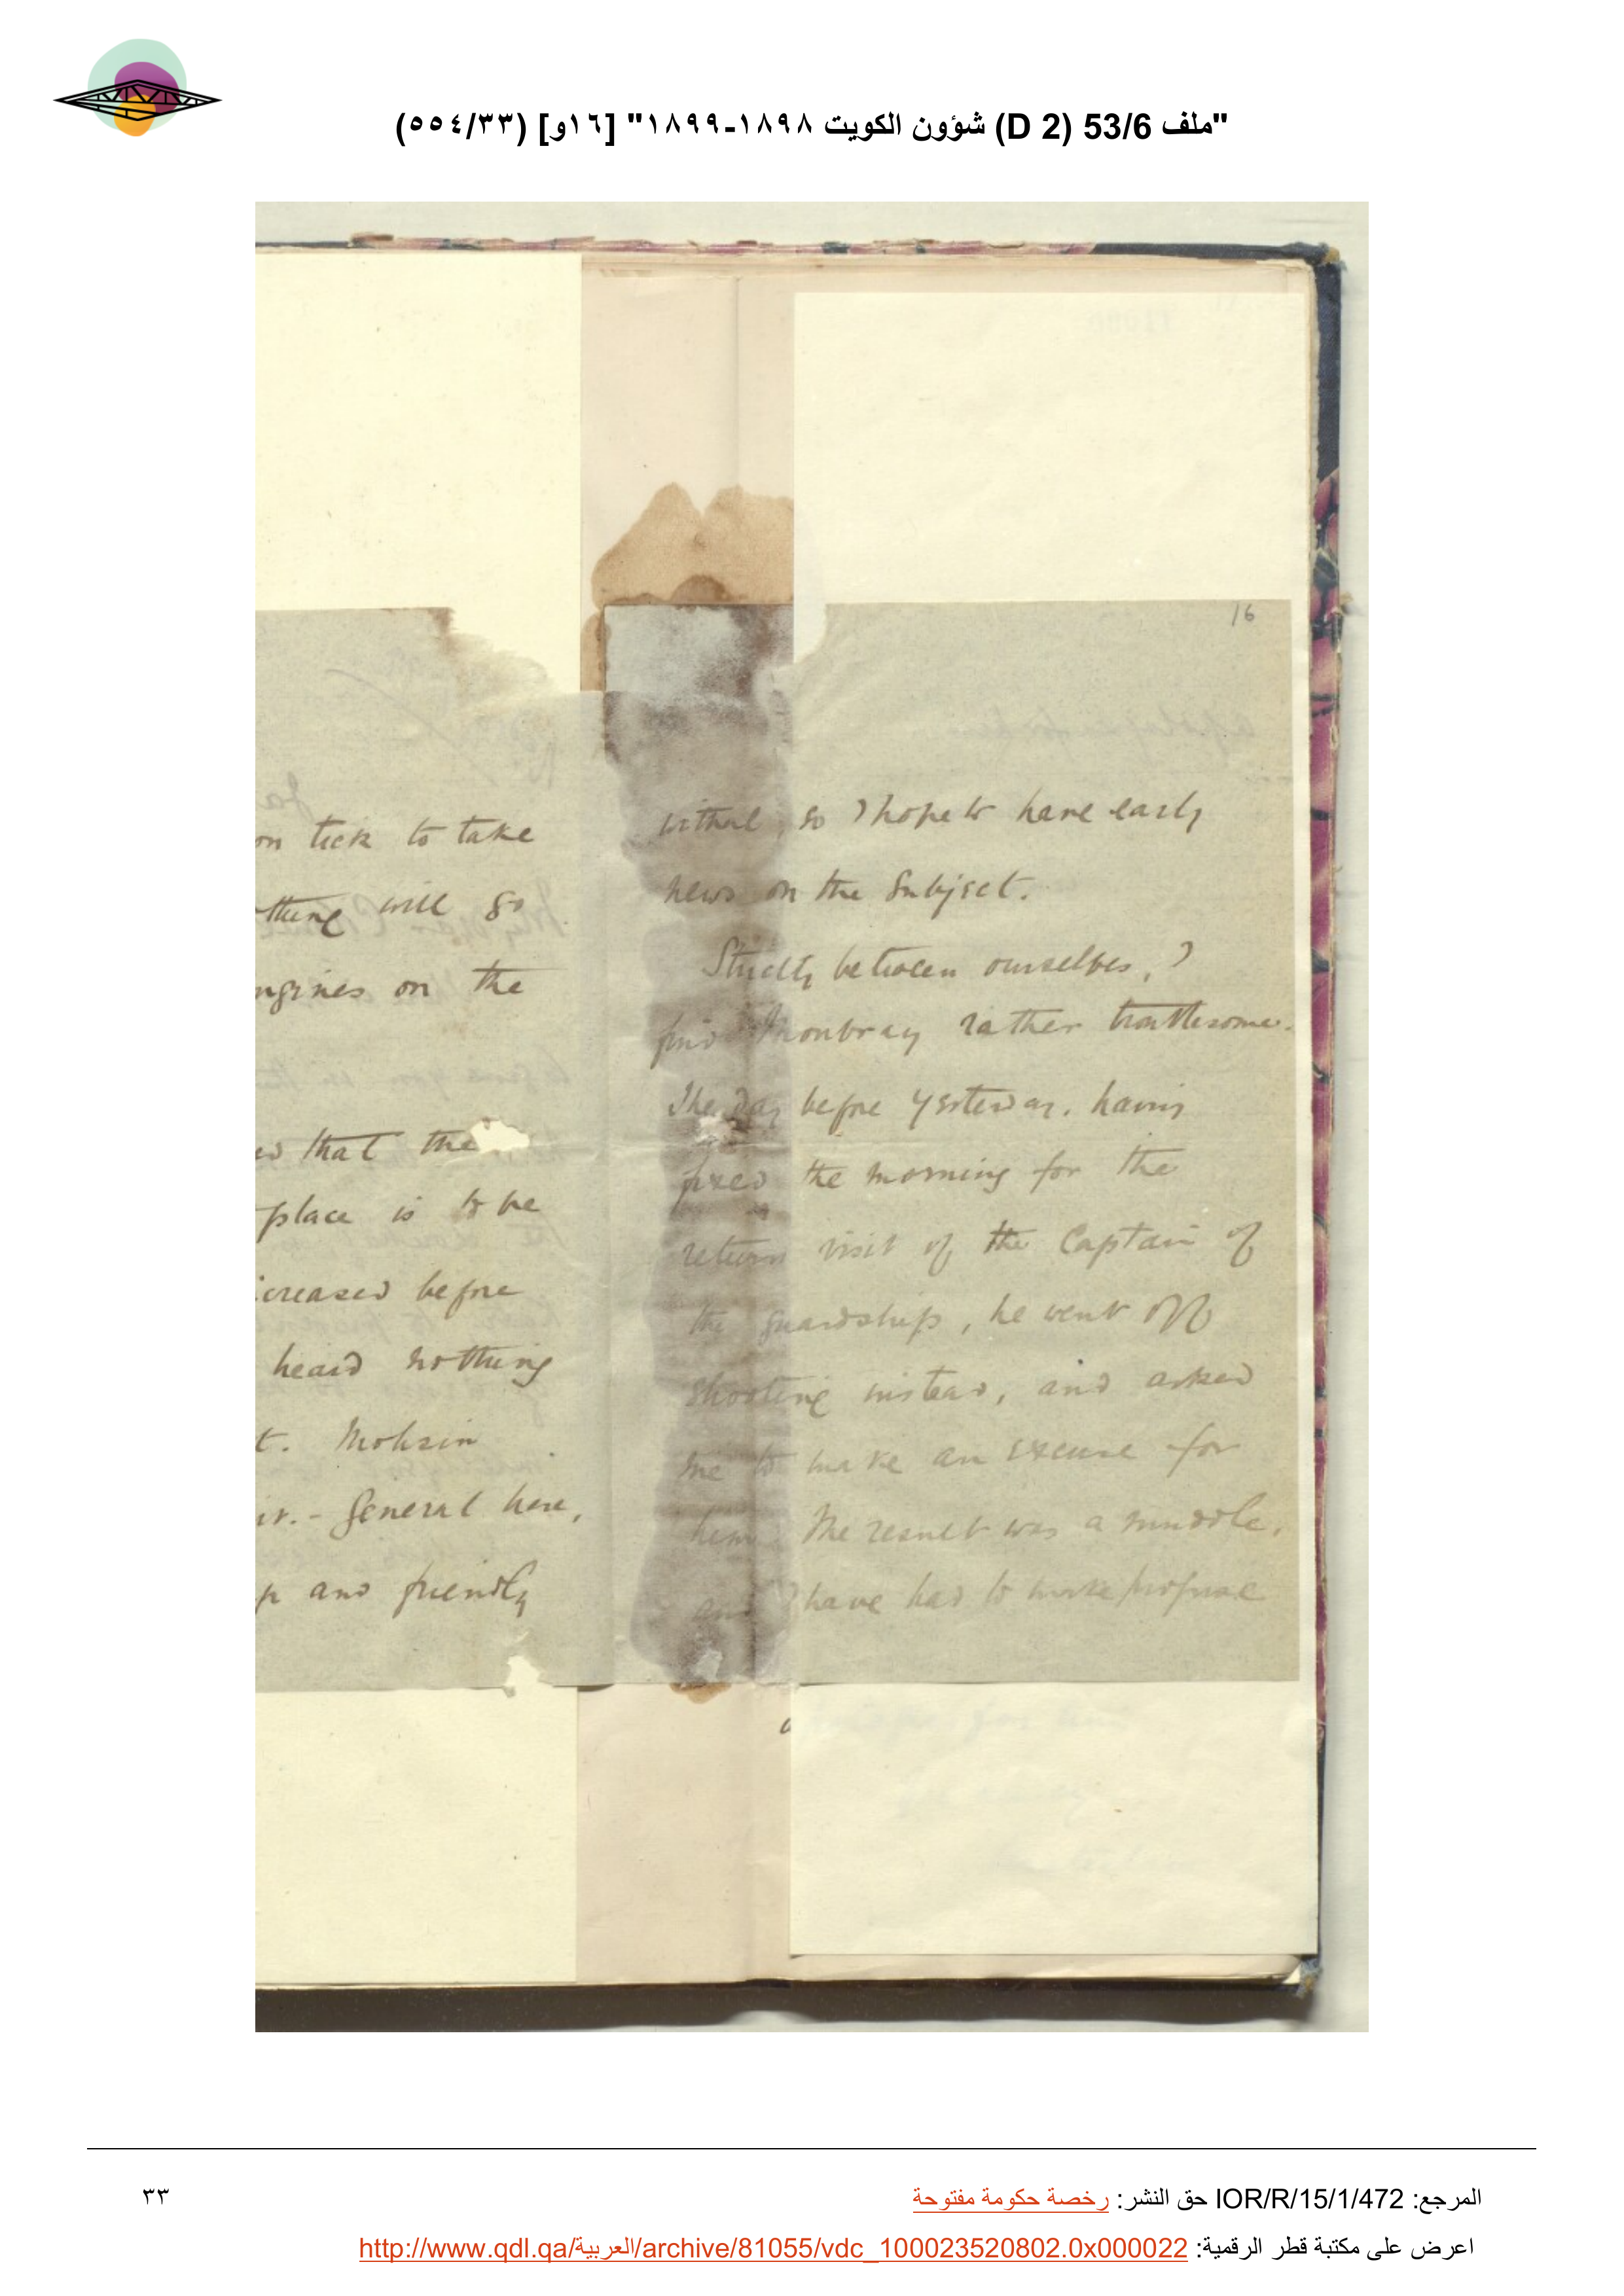 "ملف 53/6 (D 2) شؤون الكويت ١٨٩٨-١٨٩٩" [١٦و] (٥٥٤/٣٣)
on tick to take
thing will go
ngines on the
ed that the
place is to be
creased before
heard nothing
t. Mohsin
ir.- General here,
p and friendly
16
withal, so I hope to have early
news on the subject.
Strictly between ourselves, I
find Monbray rather troublesome.
The day before yesterday, having
fixed the morning for the
return visit of the Captain of
the guardship, he went off
shooting instead, and asked
me to make an excuse for
him. The result was a muddle,
and I have had to make profuse
المرجع: IOR/R/15/1/472 حق النشر: رخصة حكومة مفتوحة
٣٣
اعرض على مكتبة قطر الرقمية: http://www.qdl.qa/العربية/archive/81055/vdc_100023520802.0x000022